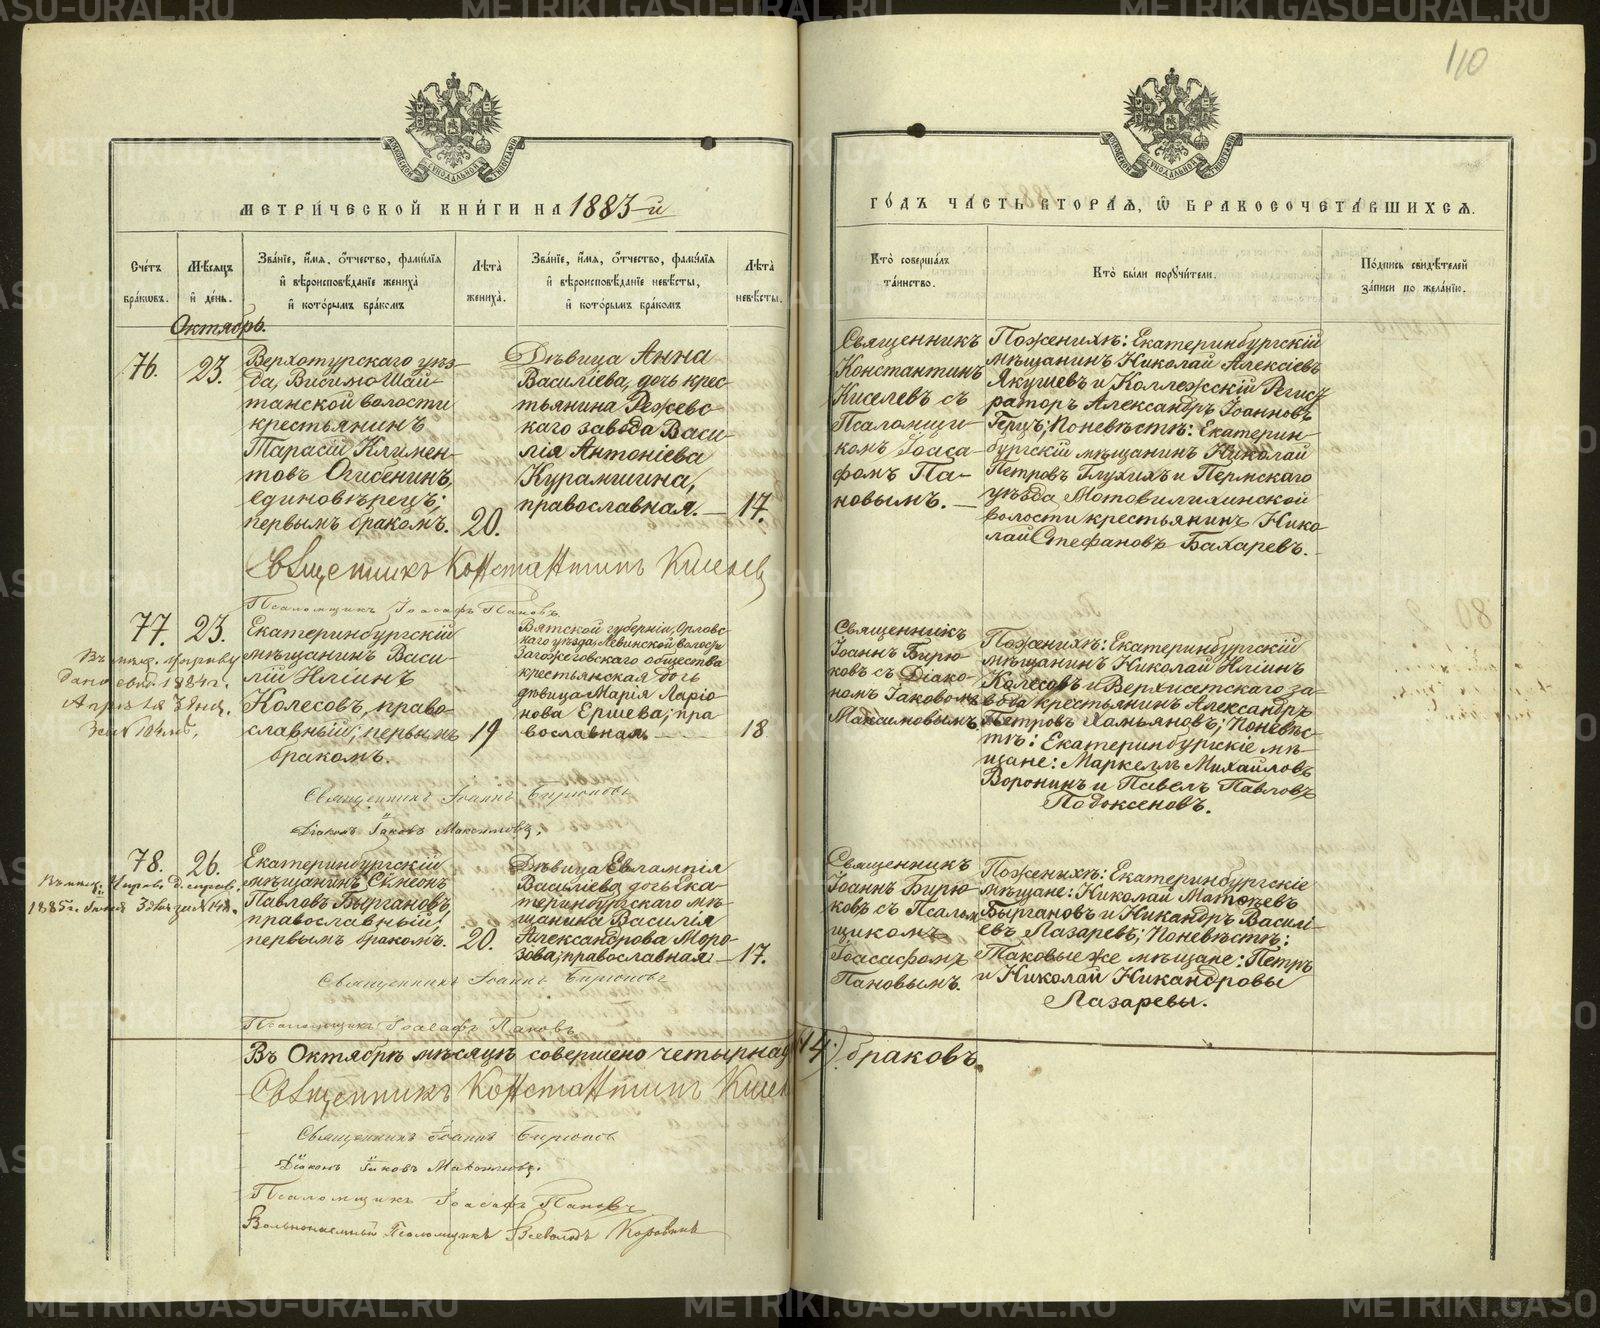 110
МЕТРИЧЕСКОЙ КНИГИ НА 1883-й
ГОДЪ ЧАСТЬ ВТОРАЯ, Ѡ БРАКОСОЧЕТАВШИХСЯ.
Счетъ браковъ.
Мѣсяцъ и день.
Званіе, имя, отчество, фамилія и вѣроисповѣданіе жениха и которымъ бракомъ
Лѣта жениха.
Званіе, имя, отчество, фамилія и вѣроисповѣданіе невѣсты, и которымъ бракомъ
Лѣта невѣсты.
Кто совершалъ таинство.
Кто были поручители.
Подпись свидѣтелей записи по желанію.
Октябрь.
76.
23.
Верхотурскаго уѣз-
да, Висимо Шай-
танской волости
крестьянинъ
Тарасій Климен-
товъ Огибенинъ,
единовѣрецъ;
первымъ бракомъ.
20.
Дѣвица Анна
Василіева, дочь крес-
тьянина Режевс-
каго завода Васи-
лія Антоніева
Курамшина,
православная.
17.
Священникъ
Константинъ
Киселевъ съ
Псаломщи-
комъ Іоаса-
фомъ Па-
новымъ.
По женихѣ: Екатеринбургскій
мѣщанинъ Николай Алексіевъ
Якушевъ и Коллежскій Регист
раторъ Александръ Іоанновъ
Герцъ; по невѣстѣ: Екатерин-
бургскій мѣщанинъ Николай
Петровъ Глухихъ и Пермскаго
уѣзда Мотовилихинской
волости крестьянинъ Нико
лай Стефановъ Бахаревъ.
Священникъ Константинъ Киселев
Псаломщикъ Іоасафъ Пановъ
77.
23.
Екатеринбургскій
мѣщанинъ Васи-
лій Иліинъ
Колесовъ, право-
славный; первымъ
бракомъ.
19
Вятской губерніи, Орловс-
каго уѣзда Левинской волости
Загожеговскаго общества
крестьянская дочь
дѣвица Марія Ларіо-
нова Ершева; пра
вославная
18
Священникъ
Іоаннъ Бирю-
ковъ съ Діако-
номъ Іаковомъ
Максимовымъ
По женихѣ: Екатеринбургскій
мѣщанинъ Николай Иліинъ
Колесовъ и Верхисетскаго за-
вода крестьянинъ Александръ
Петровъ Хамьяновъ; по невѣс-
тѣ: Екатеринбургскіе мѣ-
щане: Маркеллъ Михайловъ
Воронинъ и Павелъ Павловъ
Подоксеновъ.
Священникъ Іоаннъ Бирюковъ
Діаконъ Іаковъ Максимовъ.
78.
26.
Екатеринбургскій
мѣщанинъ Симеонъ
Павловъ Быргановъ,
православный;
первымъ бракомъ.
20.
Дѣвица Евлампія
Василіева дочь Ека-
теринбургскаго мѣ-
щанина Василія
Александрова Моро-
зова, православная.
17.
Священникъ
Іоаннъ Бирю-
ковъ съ Псалом
щикомъ
Іоасафомъ
Пановымъ.
По женихѣ: Екатеринбургскіе
мѣщане: Николай Матѳеевъ
Быргановъ и Никандръ Василі-
евъ Лазаревъ; по невѣстѣ:
Таковые же мѣщане: Петръ
и Николай Никандровы
Лазаревы.
Священникъ Іоаннъ Бирюковъ
Псаломщикъ Іоасафъ Пановъ
Въ Октябрѣ мѣсяцѣ совершено четырнад (14) браковъ.
Священникъ Константинъ Кисел
Священникъ Іоаннъ Бирюковъ
Діаконъ Іаковъ Максимовъ.
Псаломщикъ Іоасафъ Пановъ
Вольнонаемный Псаломщикъ Всеволодъ Коровинъ
METRIKI.GASO-URAL.RU